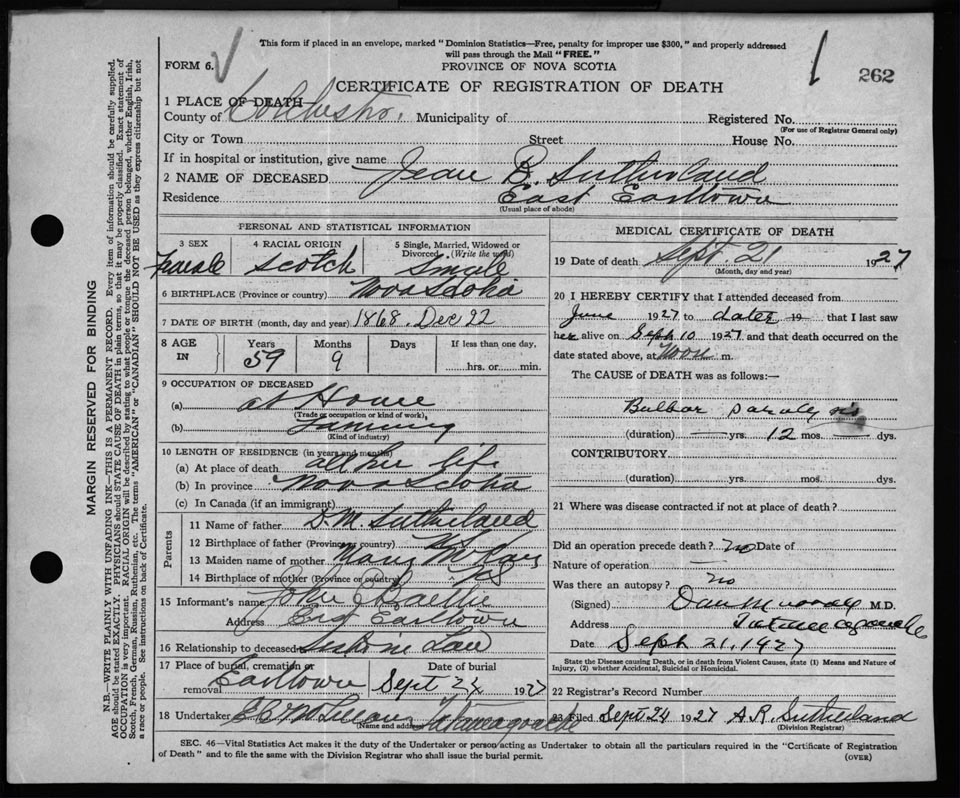 This form if placed in an envelope, marked "Dominion Statistics—Free, penalty for improper use $300," and properly addressed
will pass through the Mail "FREE."
FORM 6.
PROVINCE OF NOVA SCOTIA
1
262
CERTIFICATE OF REGISTRATION OF DEATH
1 PLACE OF DEATH—
County of Colchester. Municipality of Registered No.
(For use of Registrar General only)
City or Town Street House No.
If in hospital or institution, give name
2 NAME OF DECEASED Jean B. Sutherland
Residence East Earltown
(Usual place of abode)
PERSONAL AND STATISTICAL INFORMATION
3 SEX 4 RACIAL ORIGIN 5 Single, Married, Widowed or Divorced. (Write the word)
Female Scotch Single
6 BIRTHPLACE (Province or country) Nova Scotia
7 DATE OF BIRTH (month, day and year) 1868. Dec 22
8 AGE IN Years Months Days If less than one day,
59 9 hrs. or min.
9 OCCUPATION OF DECEASED
(a) at Home
(Trade or occupation or kind of work)
(b) Farming
(Kind of industry)
10 LENGTH OF RESIDENCE (in years and months)
(a) At place of death all her life
(b) In province Nova Scotia
(c) In Canada (if an immigrant)
Parents
11 Name of father D. M. Sutherland
12 Birthplace of father (Province or country) N S
13 Maiden name of mother Mary
14 Birthplace of mother (Province or country) N S
15 Informant's name John Baillie
Address Earltown
16 Relationship to deceased in Law
17 Place of burial, cremation or removal Earltown
Date of burial Sept 22 1927
18 Undertaker Tatamagouche
(Name and address)
MEDICAL CERTIFICATE OF DEATH
19 Date of death Sept. 21 1927
(Month, day and year)
20 I HEREBY CERTIFY that I attended deceased from
June 1927 to date 19 that I last saw
her alive on Sept 10 1927 and that death occurred on the
date stated above, at Noon m.
The CAUSE of DEATH was as follows:—
Bulbar paralysis
(duration) — yrs. 12 mos. — dys.
CONTRIBUTORY
(duration) yrs. mos. dys.
21 Where was disease contracted if not at place of death?
Did an operation precede death? no Date of
Nature of operation —
Was there an autopsy? no
(Signed) Dan Murray M.D.
Address Tatamagouche
Date Sept. 21, 1927
State the Disease causing Death, or in death from Violent Causes, state (1) Means and Nature of
Injury, (2) whether Accidental, Suicidal or Homicidal.
22 Registrar's Record Number
23 Filed Sept 24 1927 A. R. Sutherland
(Division Registrar)
SEC. 46—Vital Statistics Act makes it the duty of the Undertaker or person acting as Undertaker to obtain all the particulars required in the "Certificate of Registration
of Death" and to file the same with the Division Registrar who shall issue the burial permit.
(OVER)
MARGIN RESERVED FOR BINDING
N.B.—WRITE PLAINLY WITH UNFADING INK—THIS IS A PERMANENT RECORD. Every item of information should be carefully supplied.
AGE should be stated EXACTLY. PHYSICIANS should STATE CAUSE OF DEATH in plain terms, so that it may be properly classified. Exact statement of
OCCUPATION is very important. RACIAL ORIGIN will be described by stating to what people or tongue the deceased person belonged, whether English, Irish,
Scotch, French, German, Russian, Ruthenian, etc. The terms "AMERICAN" or "CANADIAN" SHOULD NOT BE USED as they express citizenship but not
a race or people. See instructions on back of Certificate.